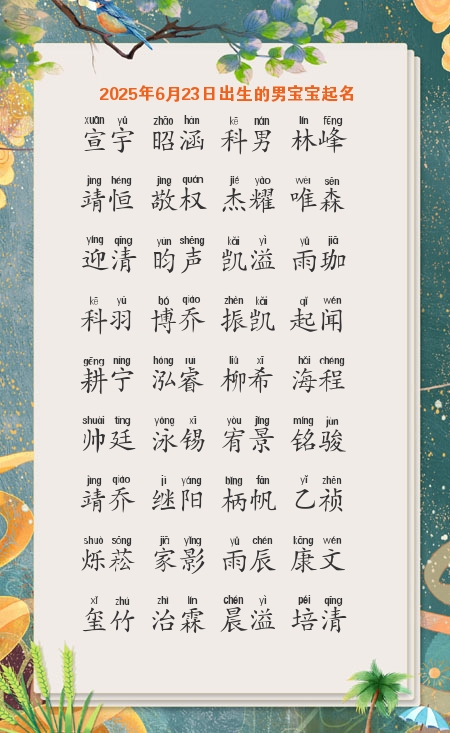 2025年6月23日出生的男宝宝起名
xuān yǔ zhāo hán kē nán lín fēng
宣宇 昭涵 科男 林峰
jìng héng jìng quán jié yào wéi sēn
靖恒 敬权 杰耀 唯森
yíng qīng yún shēng kǎi yì yǔ jiā
迎清 昀声 凯溢 雨珈
kē yǔ bó qiáo zhèn kǎi qǐ wén
科羽 博乔 振凯 起闻
gēng níng hóng ruì liǔ xī hǎi chéng
耕宁 泓睿 柳希 海程
shuài tíng yǒng xī yòu jǐng míng jùn
帅廷 泳锡 宥景 铭骏
jìng qiáo jì yáng bǐng fān yǐ zhēn
靖乔 继阳 柄帆 乙祯
shuò sōng jiā yǐng yǔ chén kāng wén
烁菘 家影 雨辰 康文
xǐ zhú zhì lín chén yì péi qīng
玺竹 治霖 晨溢 培清